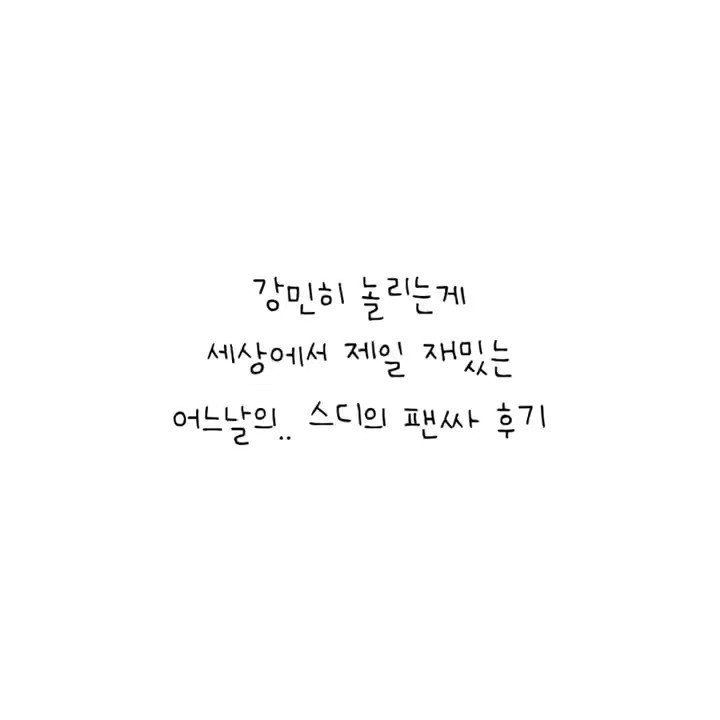 강민히 놀리는게
세상에서 제일 재밌는
어느날의.. 스디의 팬싸 후기